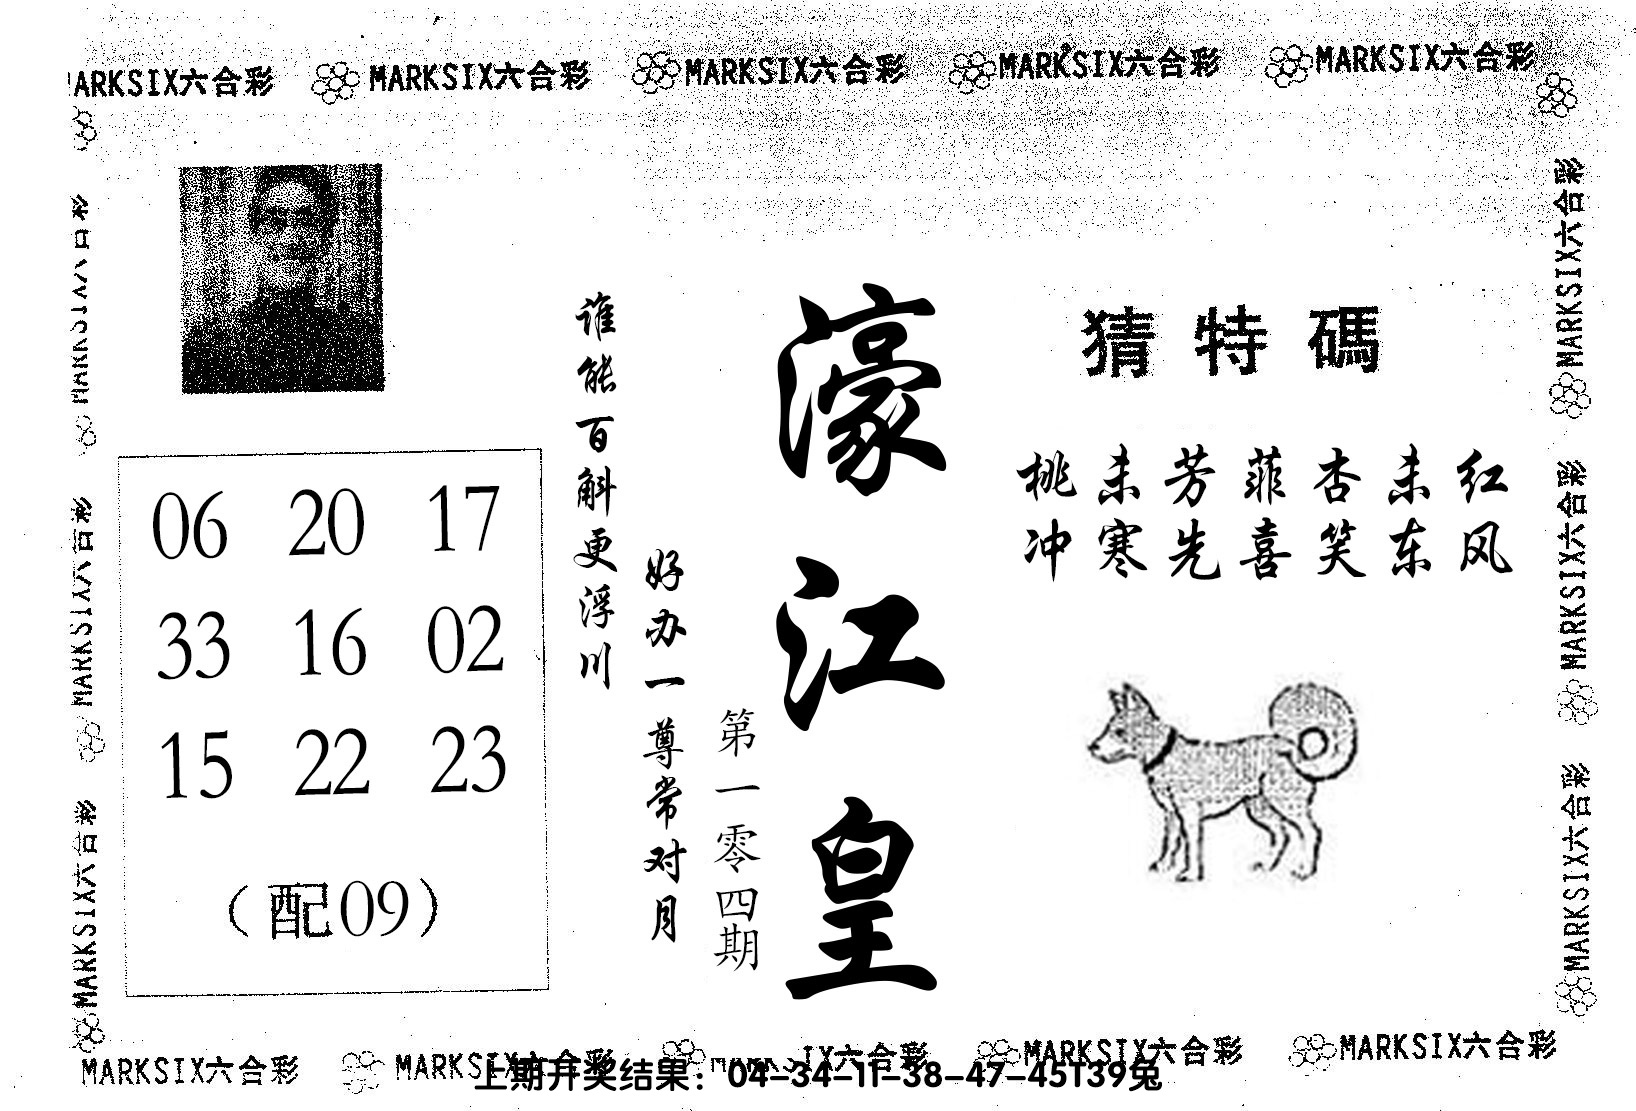 MARKSIX六合彩 MARKSIX六合彩 MARKSIX六合彩 MARKSIX六合彩
猜特碼
桃未芳菲杏未红
冲寒先喜笑东风
濠江皇
第一零四期
谁能百斛更浮川
好办一尊常对月
06 20 17
33 16 02
15 22 23
（配09）
MARKSIX六合彩
MARKSIX六合彩
MARKSIX六合彩
MARKSIX六合彩
MARKSIX六合彩
MARKSIX六合彩 MARKSIX六合彩 IX六合彩 MARKSIX六合彩 MARKSIX六合彩
上期开奖结果：04-34-11-38-47-45T39兔